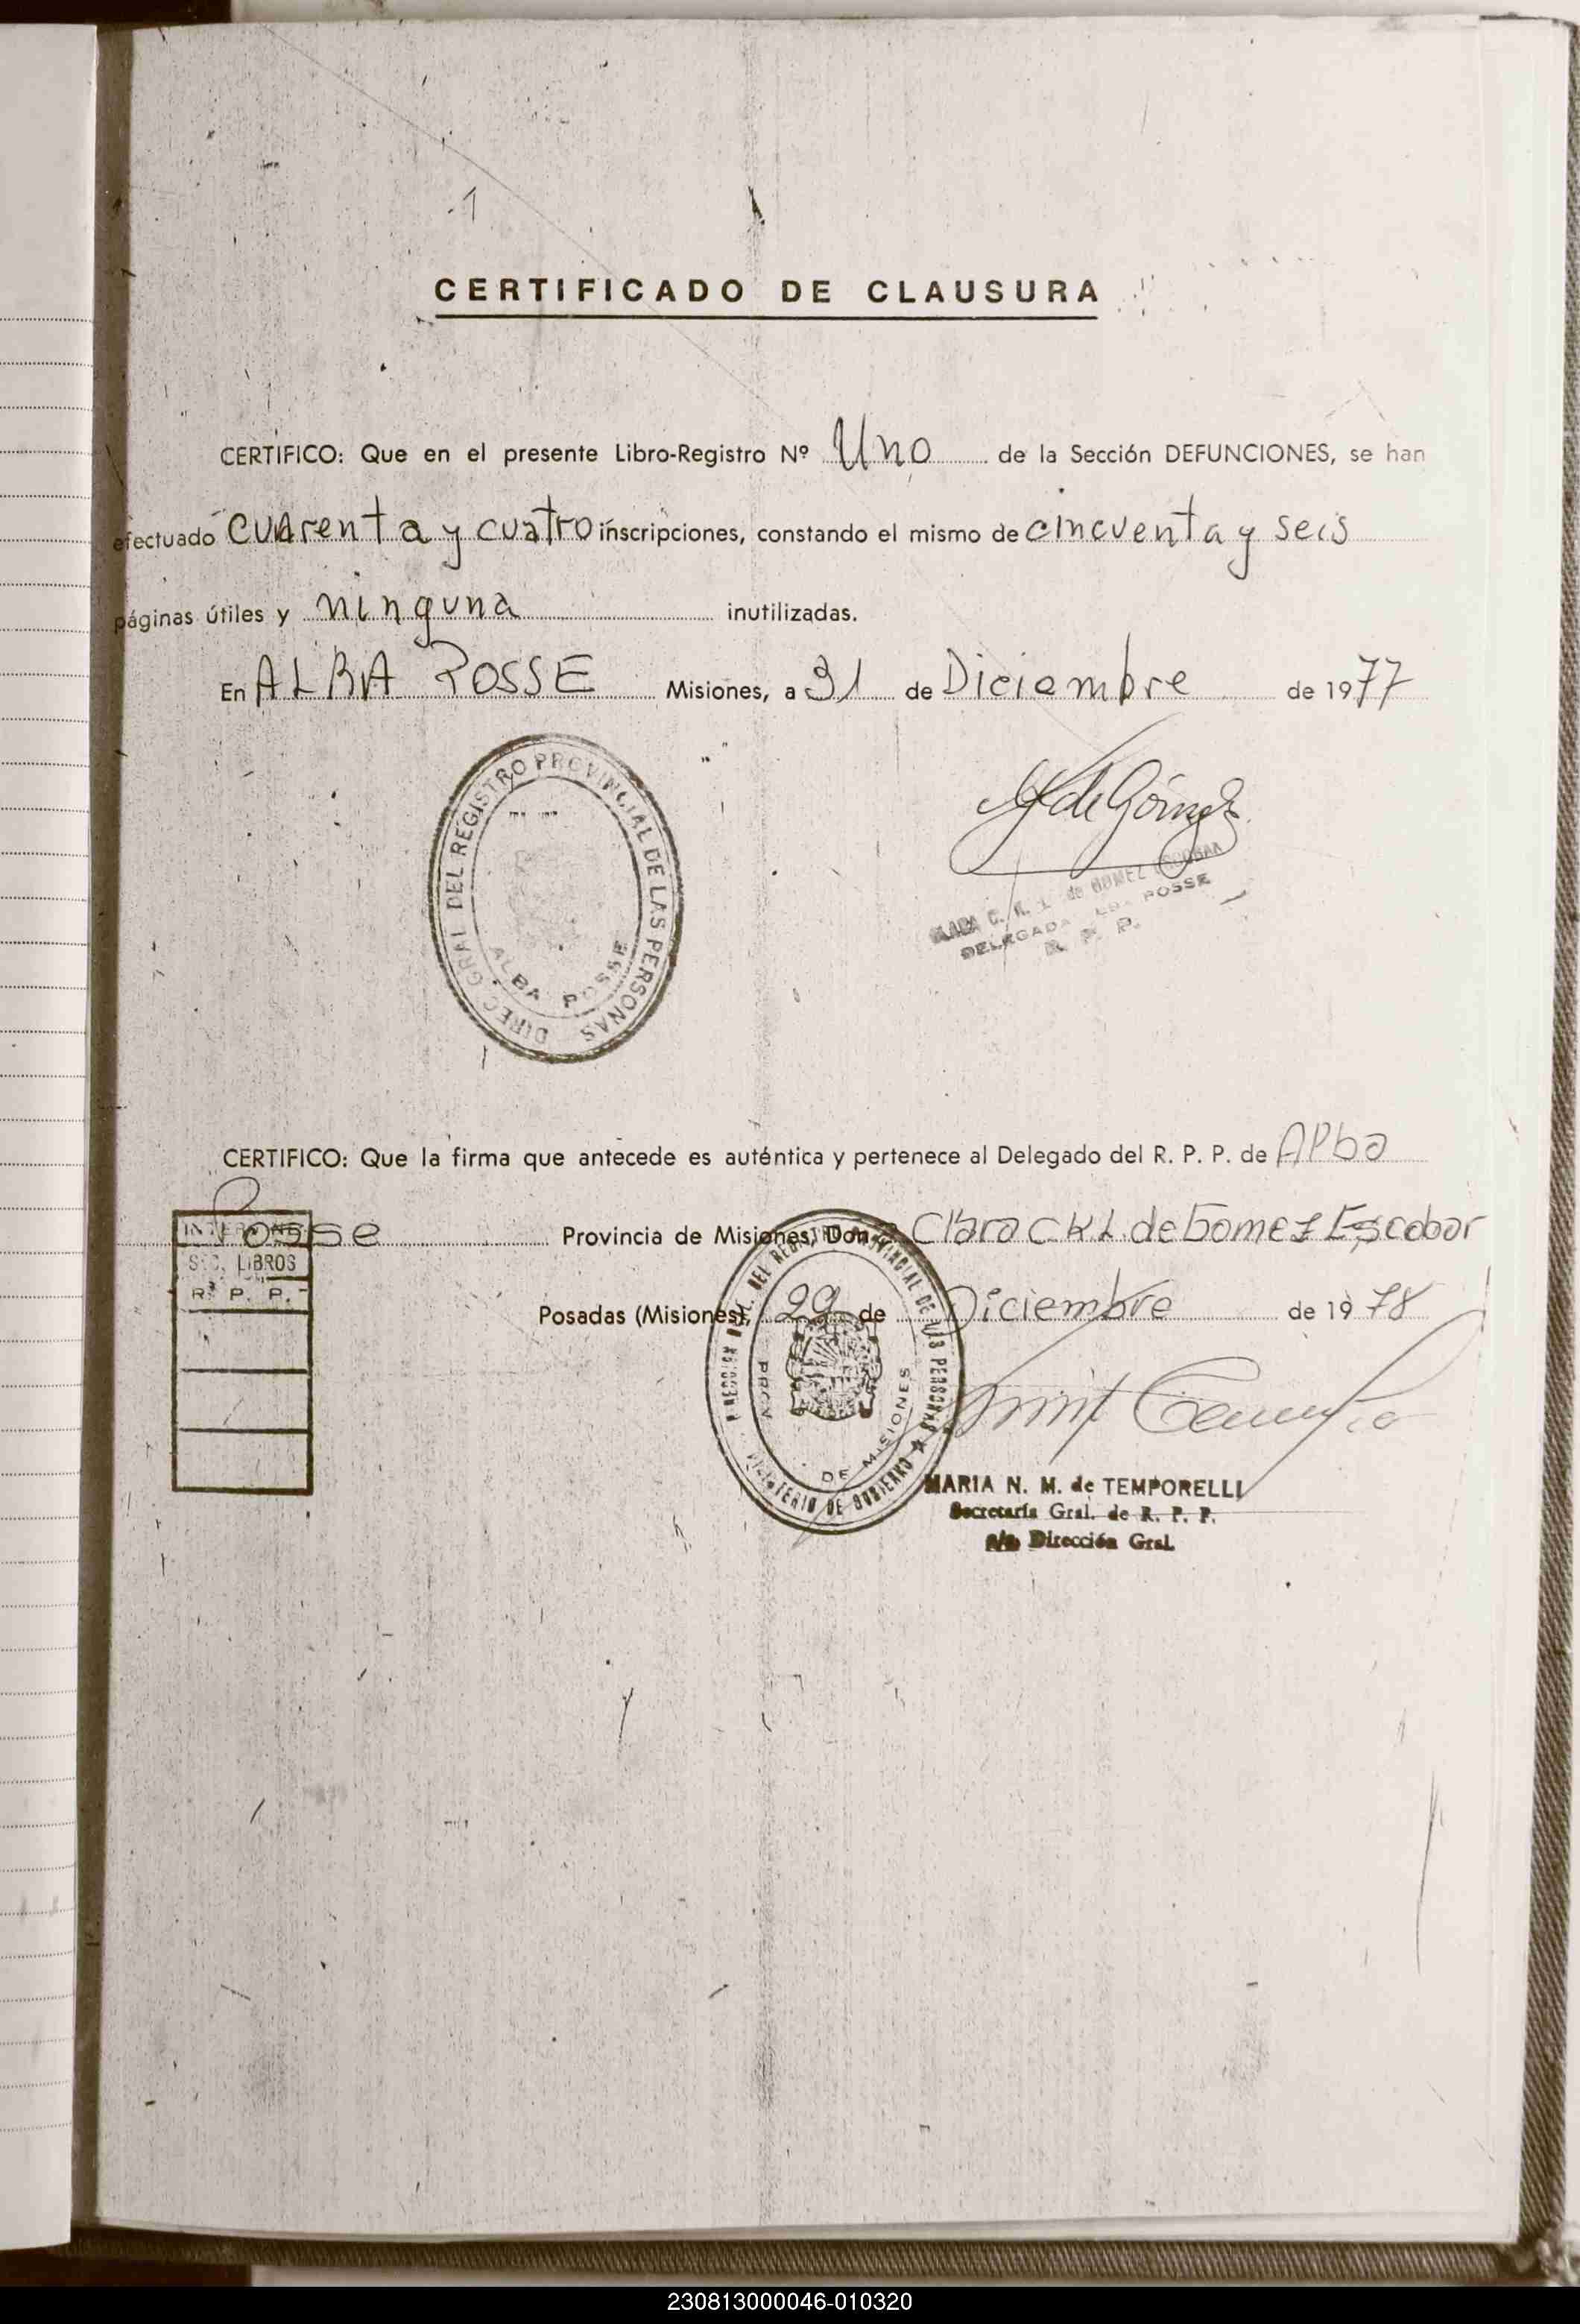 CERTIFICADO DE CLAUSURA
CERTIFICO: Que en el presente Libro-Registro Nº Uno de la Sección DEFUNCIONES, se han
efectuado cuarenta y cuatro inscripciones, constando el mismo de cincuenta y seis
páginas útiles y ninguna inutilizadas.
En ALBA POSSE Misiones, a 31 de Diciembre de 1977
DIREC. GRAL DEL REGISTRO PROVINCIAL DE LAS PERSONAS
ALBA POSSE
de Gómez
de GOMEZ ESCOBAR
DELEGADA ALBA POSSE
R. P. P.
CERTIFICO: Que la firma que antecede es auténtica y pertenece al Delegado del R. P. P. de Alba
Posse Provincia de Misiones, Don Clara C K L de Gomez Escobar
SEC. LIBROS
R. P. P.
Posadas (Misiones), 29 de Diciembre de 1978
DIRECCION GRAL. DEL REGISTRO PROVINCIAL DE LAS PERSONAS ★ MINISTERIO DE GOBIERNO
PROV. DE MISIONES
MARIA N. M. de TEMPORELLI
Secretaria Gral. de R. P. P.
a/c Dirección Gral.
230813000046-010320